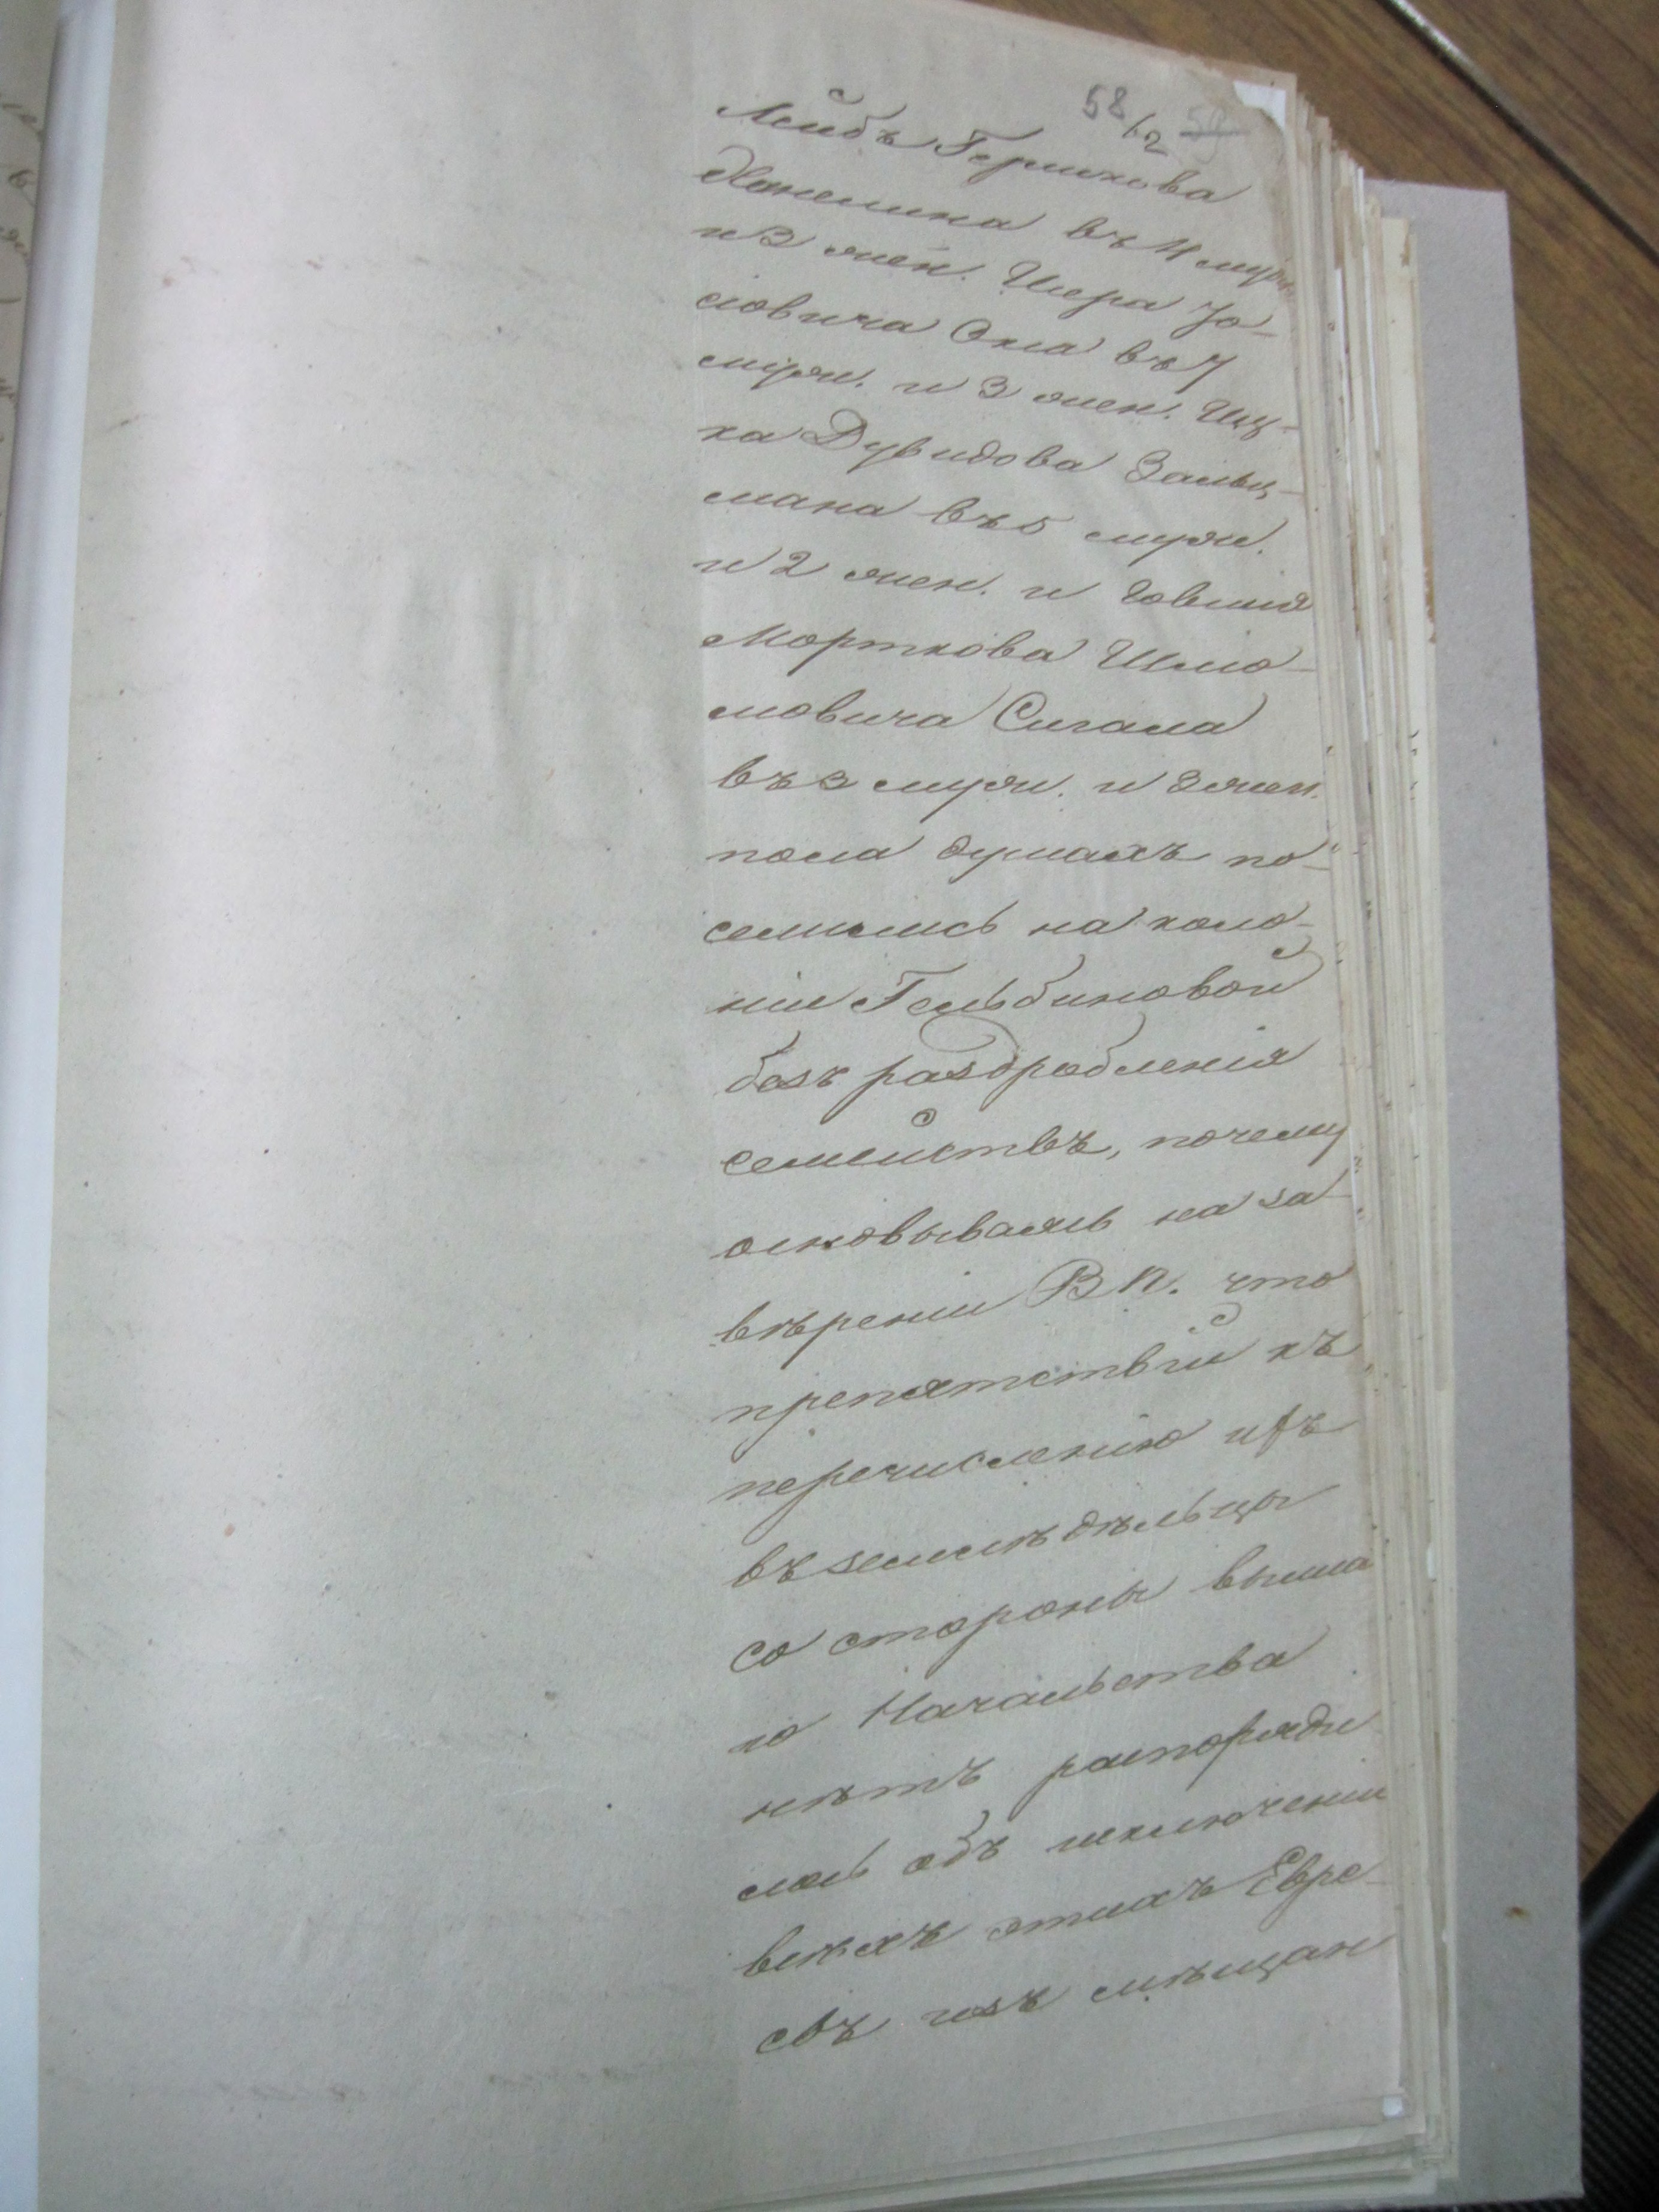 58/2 59
Лейбъ Гершкова
Ханелиса въ 4 муж.
и 3 жен. Шера Іо-
сіовича Окса въ 7
муж. и 3 жен. Иц-
ка Дувидова Зальц-
мана въ 5 муж.
и 2 жен. и Говшія
Морткова Шмо-
мовича Сигала
въ 3 муж. и 3 жен.
пола душахъ по-
селились на коло-
ніи Гельбиновой
безъ раздробленія
семействъ, почему
основываясь на за-
вѣреніи В П. что
препятствій къ
перечисленію ихъ
въ земледѣльцы
со стороны выша
го Начальства
нѣтъ распоряди
лось объ исключеніи
всѣхъ этихъ Евре-
евъ изъ мѣщан